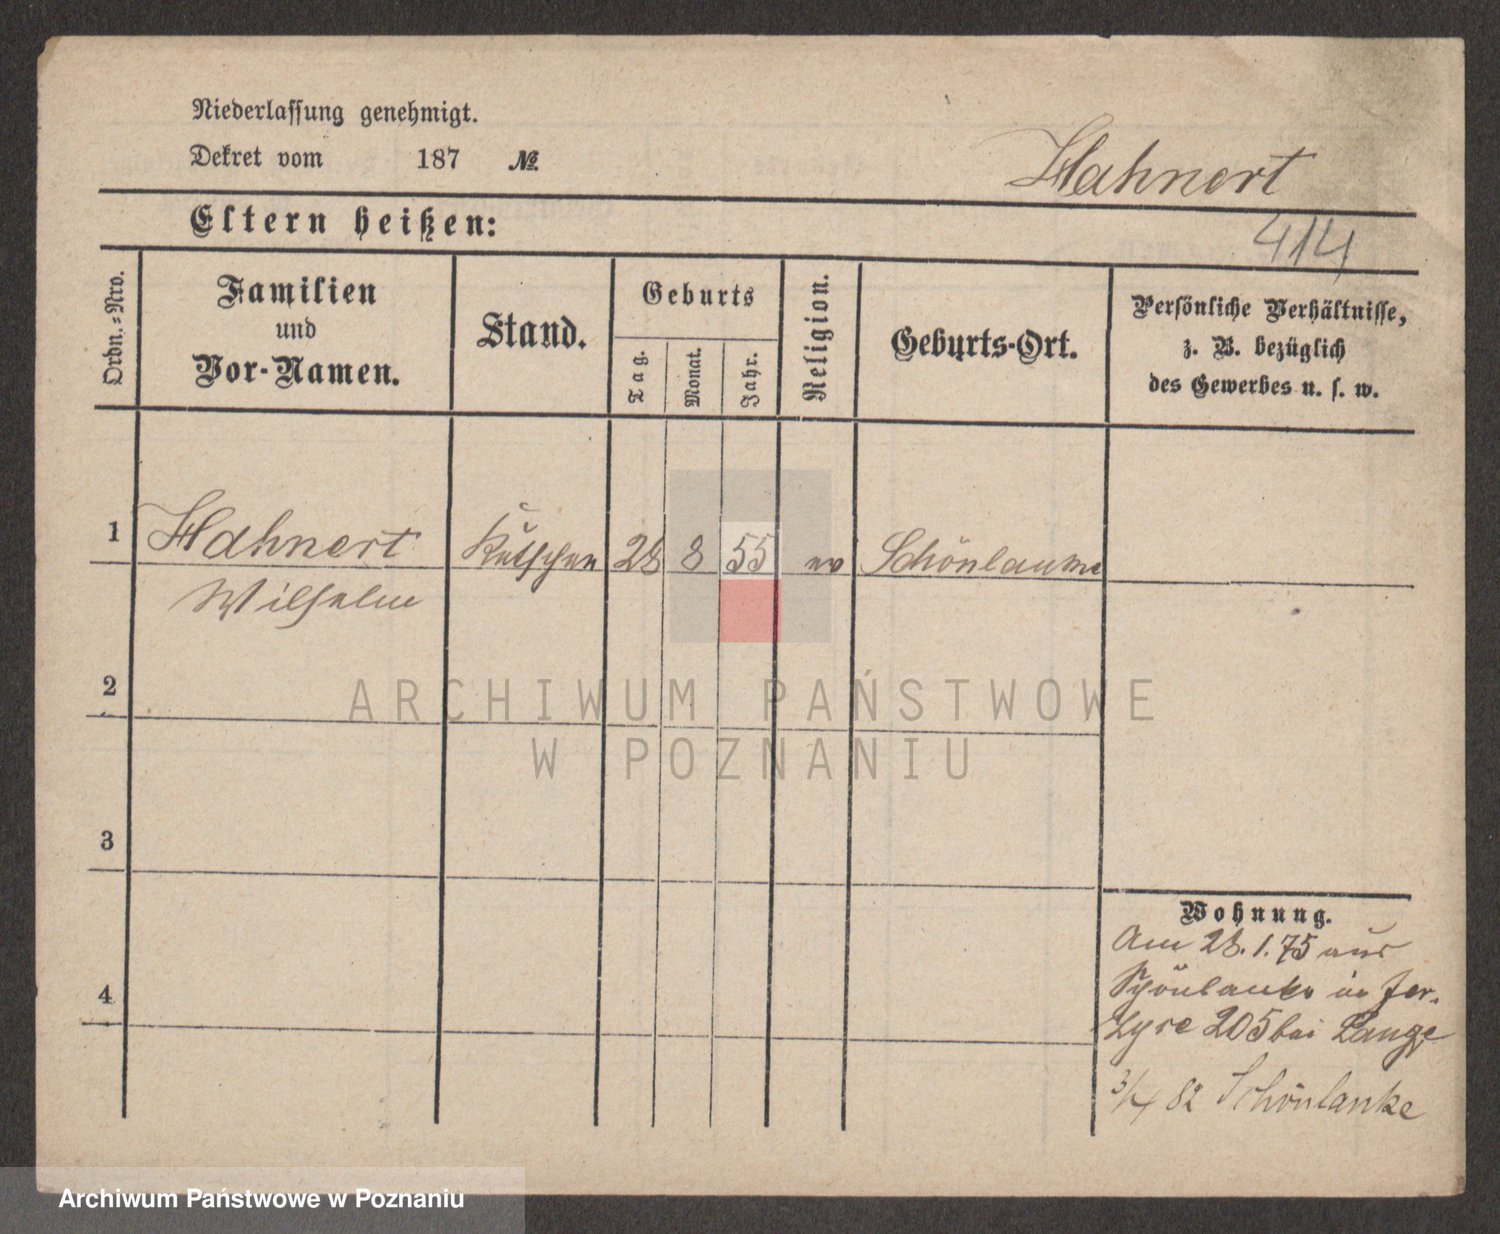 Niederlassung genehmigt.
Dekret vom 187 №
Hahnert
Eltern heißen:
414
Ordn.-Nro.
Familien
und
Vor-Namen.
Stand.
Geburts
Tag.
Monat.
Jahr.
Religion.
Geburts-Ort.
Persönliche Verhältnisse,
z. B. bezüglich
des Gewerbes u. s. w.
1 Hahnert Kutscher 28 8 55 ev Schönlanke
Wilhelm
2
ARCHIWUM PAŃSTWOWE
W POZNANIU
3
Wohnung.
Am 28.1.75 aus
Schönlanke in Jer-
4
zyce 205 bei Lange
3/4 82 Schönlanke
Archiwum Państwowe w Poznaniu